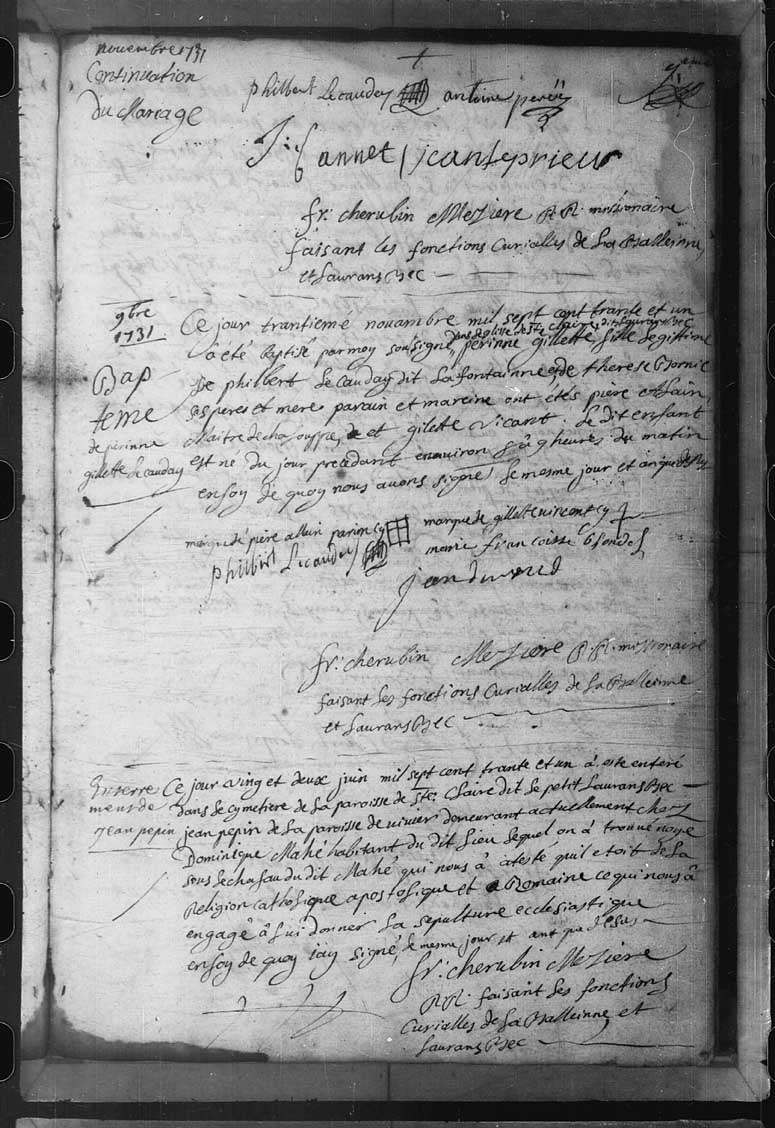 novembre 1731
Continuation
Du Mariage
philbert Lecauday antoine
J: Cannet jcanteprieur
fr: cherubin Mesiere R R: missionaire
faisant les fonctions Curialles de La Balleinne
et Lauransbec
9bre
1731
Bap
teme
de perinne
gillette Lecauday
Ce jour trantiemé novambre mil sept cent trante et un
dans leglise de Ste claire dit Lauransbec
a été baptisé par moy soussigné perinne gillette fille Legittime
De philbert Lecauday dit La fontainne et de therese
ses peres et mere parain et mareine ont étés pière allain
Maitre de chalouppe, et gilette vicant. Le dit enfant
est né du jour precedant environ 8 à 9 heures du matin
en foy de quoy nous avons signé le mesme jour et an que dessus
marque de pière allain parin cy
marque de gillette vincent cy
philbert Lecauday
marie francoisse blondel
jan
fr: cherubin Mesiere R. R. missionaire
faisant les fonctions Curialles de La Balleinne
et Lauransbec
Enterre
ment de
jean pepin
Ce jour ving et deux juin mil sept cent trante et un à este enteré
dans le cymetiere de La paroisse de Ste: Claire dit le petit Lauransbec
jean pepin de La paroisse de demeurant actuellement chez
Dominique Mahé habitant du dit lieu lequel on à trouvé noyé
sous le chafau du dit Mahé qui nous à atesté quil etoit de La
Religion catholique apostolique et Romaine ce qui nous à
engagé à lui donner La sepulture ecclesiastique
en foy de quoy iay signé, le mesme jour et ant que desus
fr: cherubin Mesiere
R R: faisant les fonctions
Curialles de La Balleinne et
Lauransbec